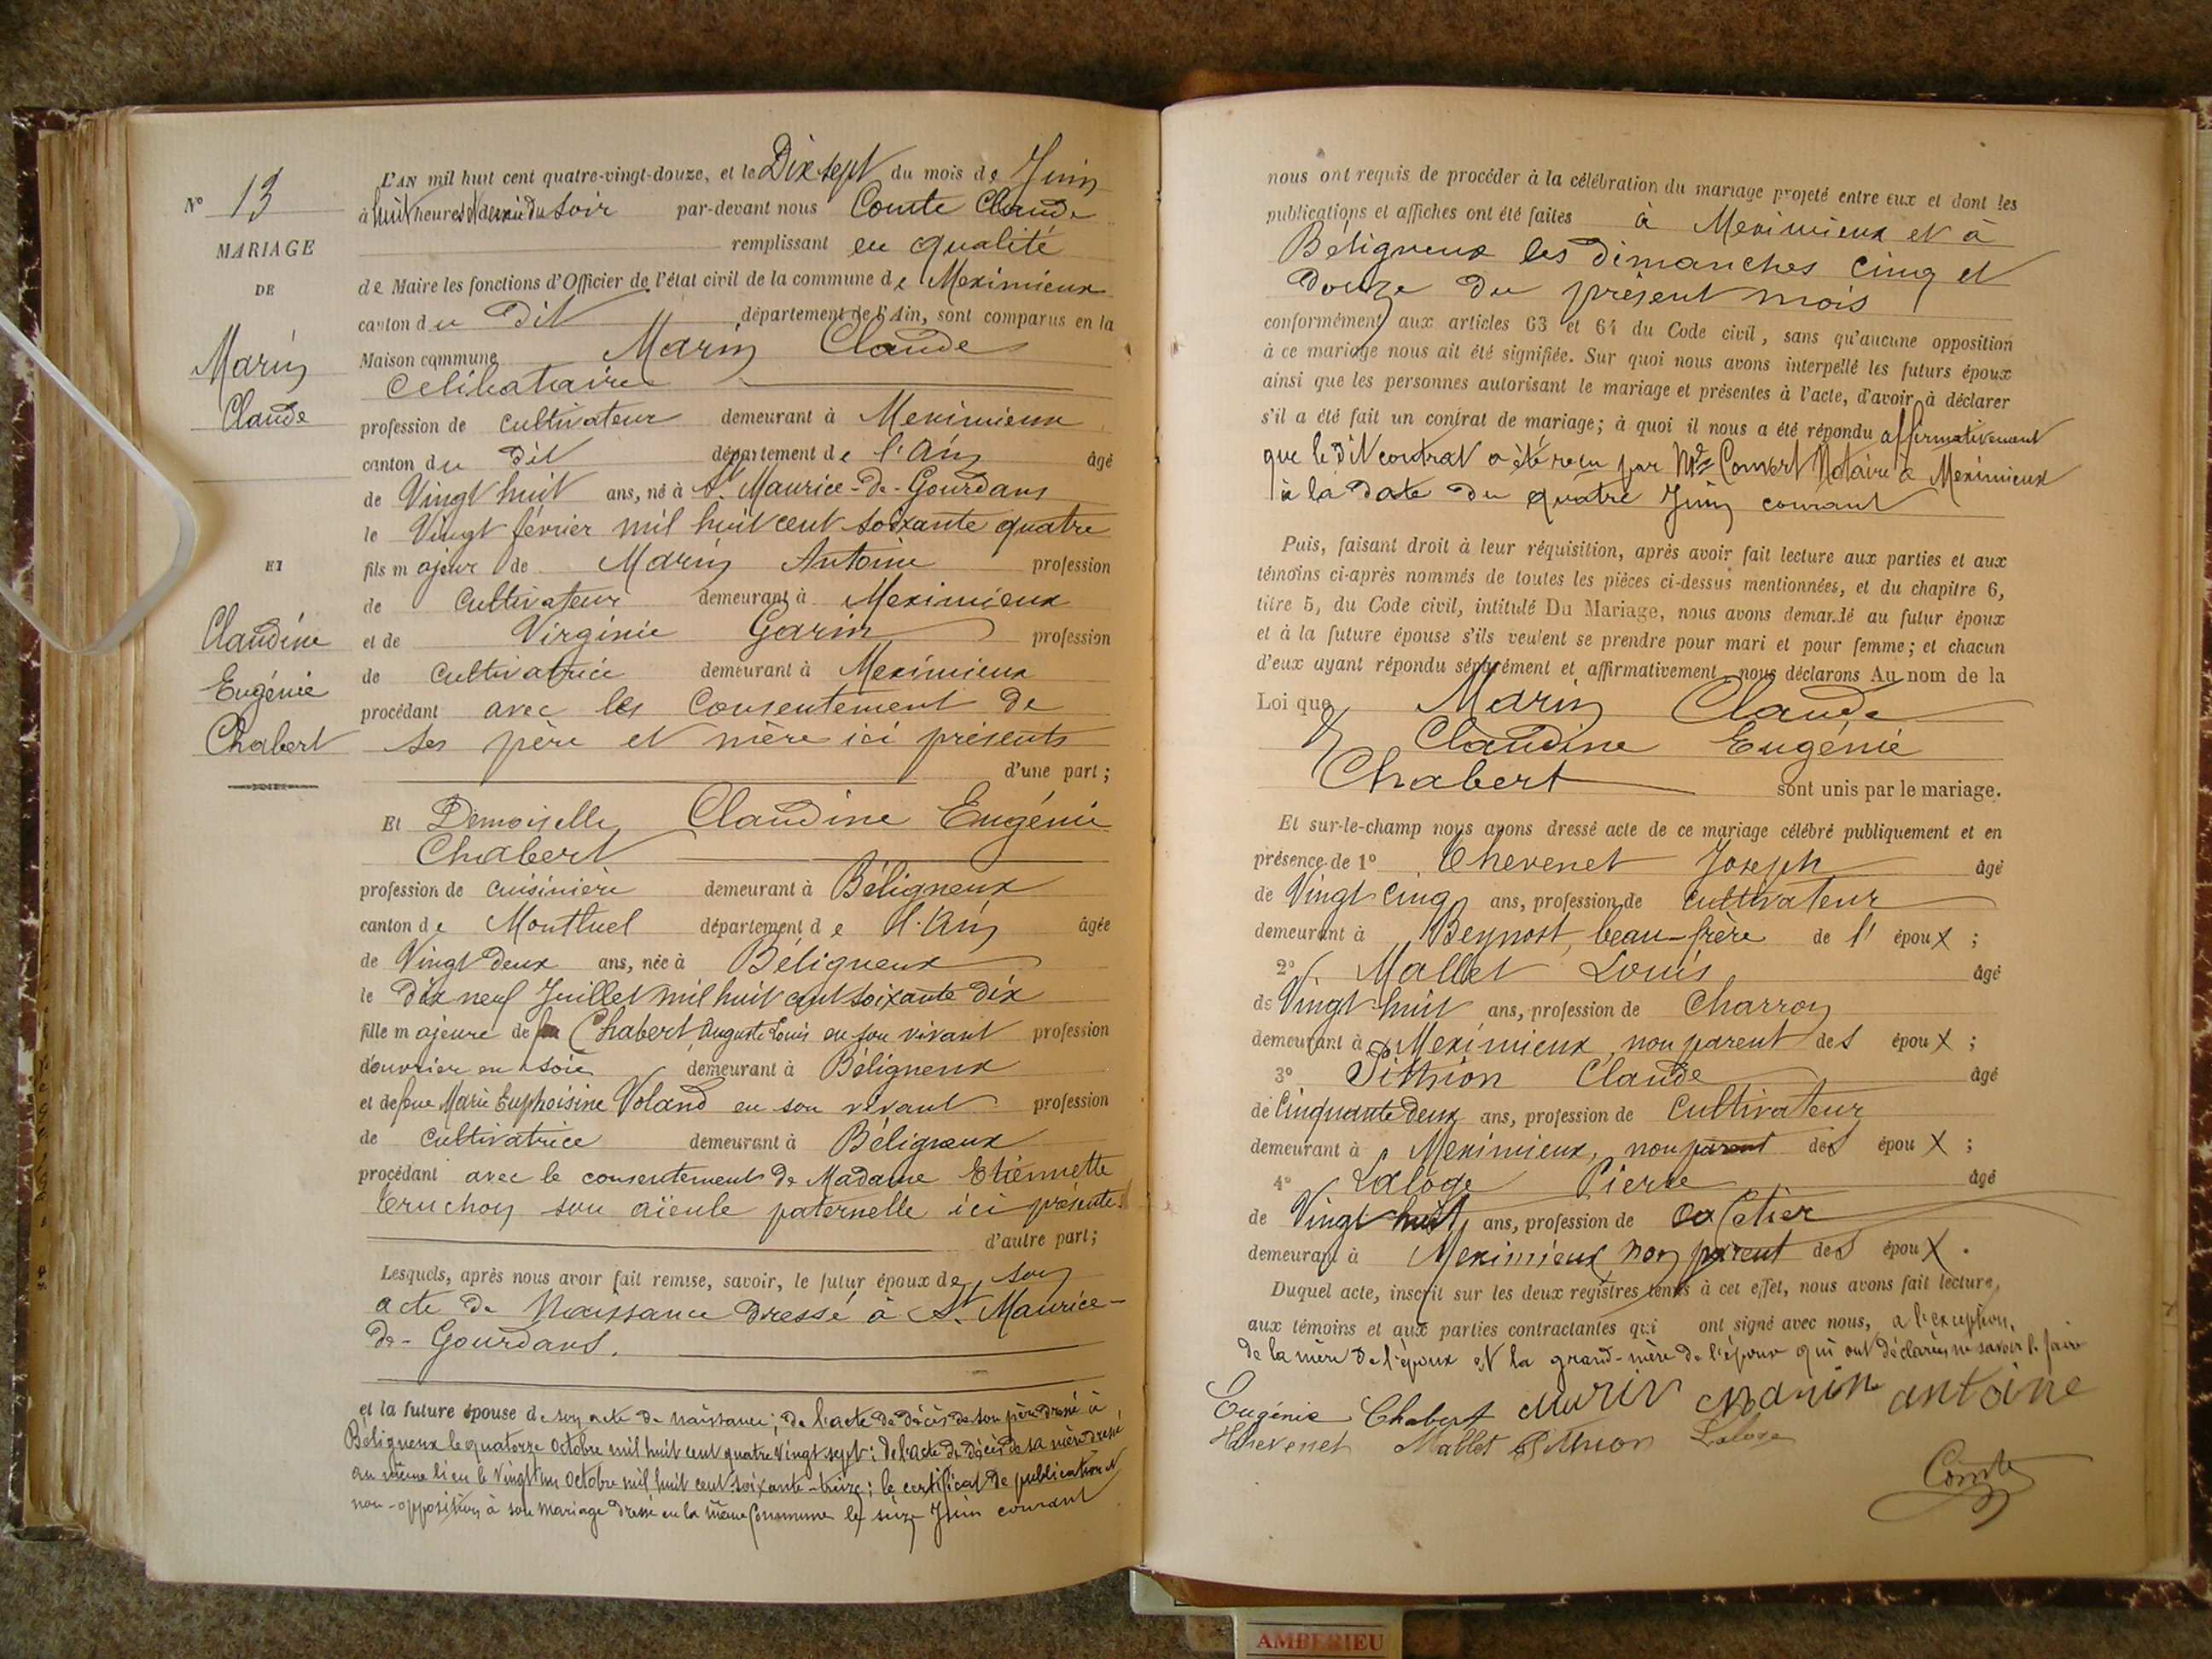 N° 13
MARIAGE
DE
Marin
Claude
ET
Claudine
Eugénie
Chabert
L'AN mil huit cent quatre-vingt-douze, et le Dix sept du mois de Juin
à huit heures et demie du soir par-devant nous Comte Claude
remplissant en qualité
de Maire les fonctions d'Officier de l'état civil de la commune de Meximieux
canton du dit département de l'Ain, sont comparus en la
Maison commune Marin Claude
Célibataire
profession de cultivateur demeurant à Meximieux
canton du dit département de l'Ain âgé
de Vingt huit ans, né à St. Maurice-de-Gourdans
le Vingt février mil huit cent soixante quatre
fils majeur de Marin Antoine profession
de Cultivateur demeurant à Meximieux
et de Virginie Garin profession
de cultivatrice demeurant à Meximieux
procédant avec les Consentement de
ses père et mère ici présents
d'une part;
Et Demoiselle Claudine Eugénie
Chabert
profession de cuisinière demeurant à Béligneux
canton de Montluel département de l'Ain âgée
de Vingt deux ans, née à Béligneux
le dix neuf Juillet mil huit cent soixante dix
fille majeure de Chabert Auguste Louis en son vivant profession
d'ouvrier en soie demeurant à Béligneux
et de feue Marie Euphoisine Voland en son vivant profession
de cultivatrice demeurant à Béligneux
procédant avec le consentement de Madame Etiennette
Cruchon son aïeule paternelle ici présente
d'autre part;
Lesquels, après nous avoir fait remise, savoir, le futur époux de son
acte de Naissance dressé à St. Maurice-
de-Gourdans.
et la future épouse de son acte de naissance; de l'acte de décès de son père dressé à
Béligneux le quatorze Octobre mil huit cent quatre vingt sept; de l'acte de décès de sa mère dressé
au même lieu le vingt un Octobre mil huit cent soixante-treize; le certificat de publication et
non-opposition à son mariage dressé en la même Commune le seize Juin courant
nous ont requis de procéder à la célébration du mariage projeté entre eux et dont les
publications et affiches ont été faites à Meximieux et à
Béligneux les dimanches cinq et
douze du présent mois
conformément aux articles 63 et 64 du Code civil, sans qu'aucune opposition
à ce mariage nous ait été signifiée. Sur quoi nous avons interpellé les futurs époux
ainsi que les personnes autorisant le mariage et présentes à l'acte, d'avoir à déclarer
s'il a été fait un contrat de mariage; à quoi il nous a été répondu affirmativement
que le dit contrat a été reçu par Me Convert Notaire à Meximieux
à la date du quatre Juin courant
Puis, faisant droit à leur réquisition, après avoir fait lecture aux parties et aux
témoins ci-après nommés de toutes les pièces ci-dessus mentionnées, et du chapitre 6,
titre 5, du Code civil, intitulé Du Mariage, nous avons demandé au futur époux
et à la future épouse s'ils veulent se prendre pour mari et pour femme; et chacun
d'eux ayant répondu séparément et affirmativement nous déclarons Au nom de la
Loi que Marin Claude
& Claudine Eugénie
Chabert sont unis par le mariage.
Et sur-le-champ nous avons dressé acte de ce mariage célébré publiquement et en
présence de 1° Chevenet Joseph âgé
de Vingt cinq ans, profession de cultivateur
demeurant à Beynost, beau-frère de l'époux ;
2° Mallet Louis âgé
de Vingt huit ans, profession de Charron
demeurant à Meximieux, non parent des époux ;
3° Pithion Claude âgé
de Cinquante deux ans, profession de cultivateur
demeurant à Meximieux, non parent des époux ;
4° Laloge Pierre âgé
de Vingt huit ans, profession de cafetier
demeurant à Meximieux non parent des époux.
Duquel acte, inscrit sur les deux registres tenus à cet effet, nous avons fait lecture,
aux témoins et aux parties contractantes qui ont signé avec nous, à l'exception,
de la mère de l'époux et la grand-mère de l'épouse qui ont déclarées ne savoir le faire
Eugénie Chabert Marin Marin Antoine
Chevenet Mallet Pithion Laloge
Comte
AMBERIEU